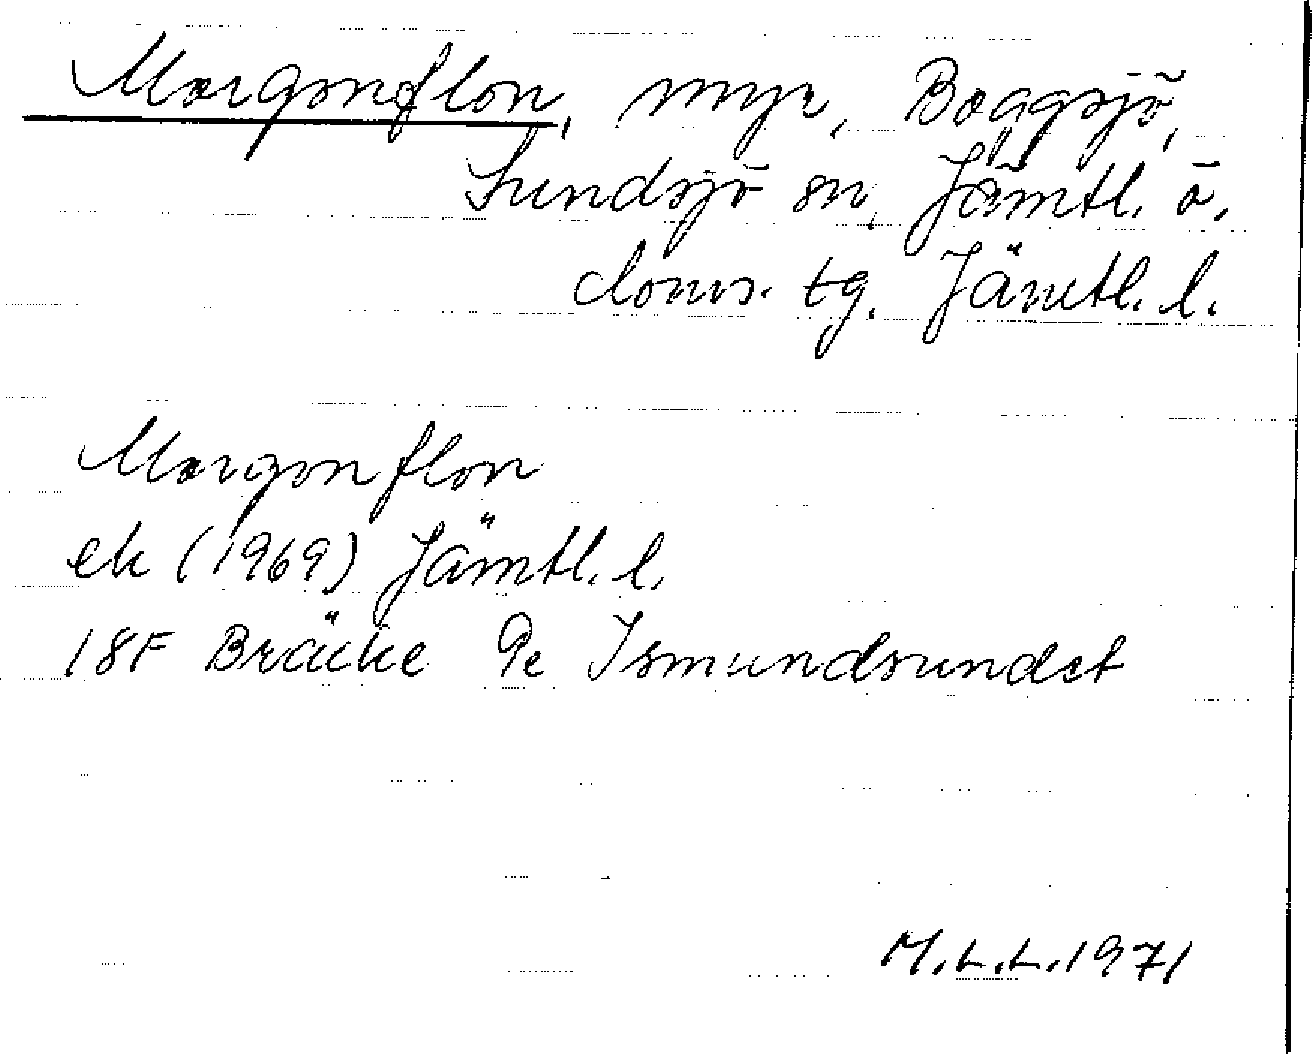 Morgonflon, myr, Boggsjö,
Sundsjö sn, Jämtl. ö.
doms. tg. Jämtl. l.
Morgonflon
ek (1969) Jämtl. l.
18F Bräcke 9e Ismundsundet
M.L.L. 1971